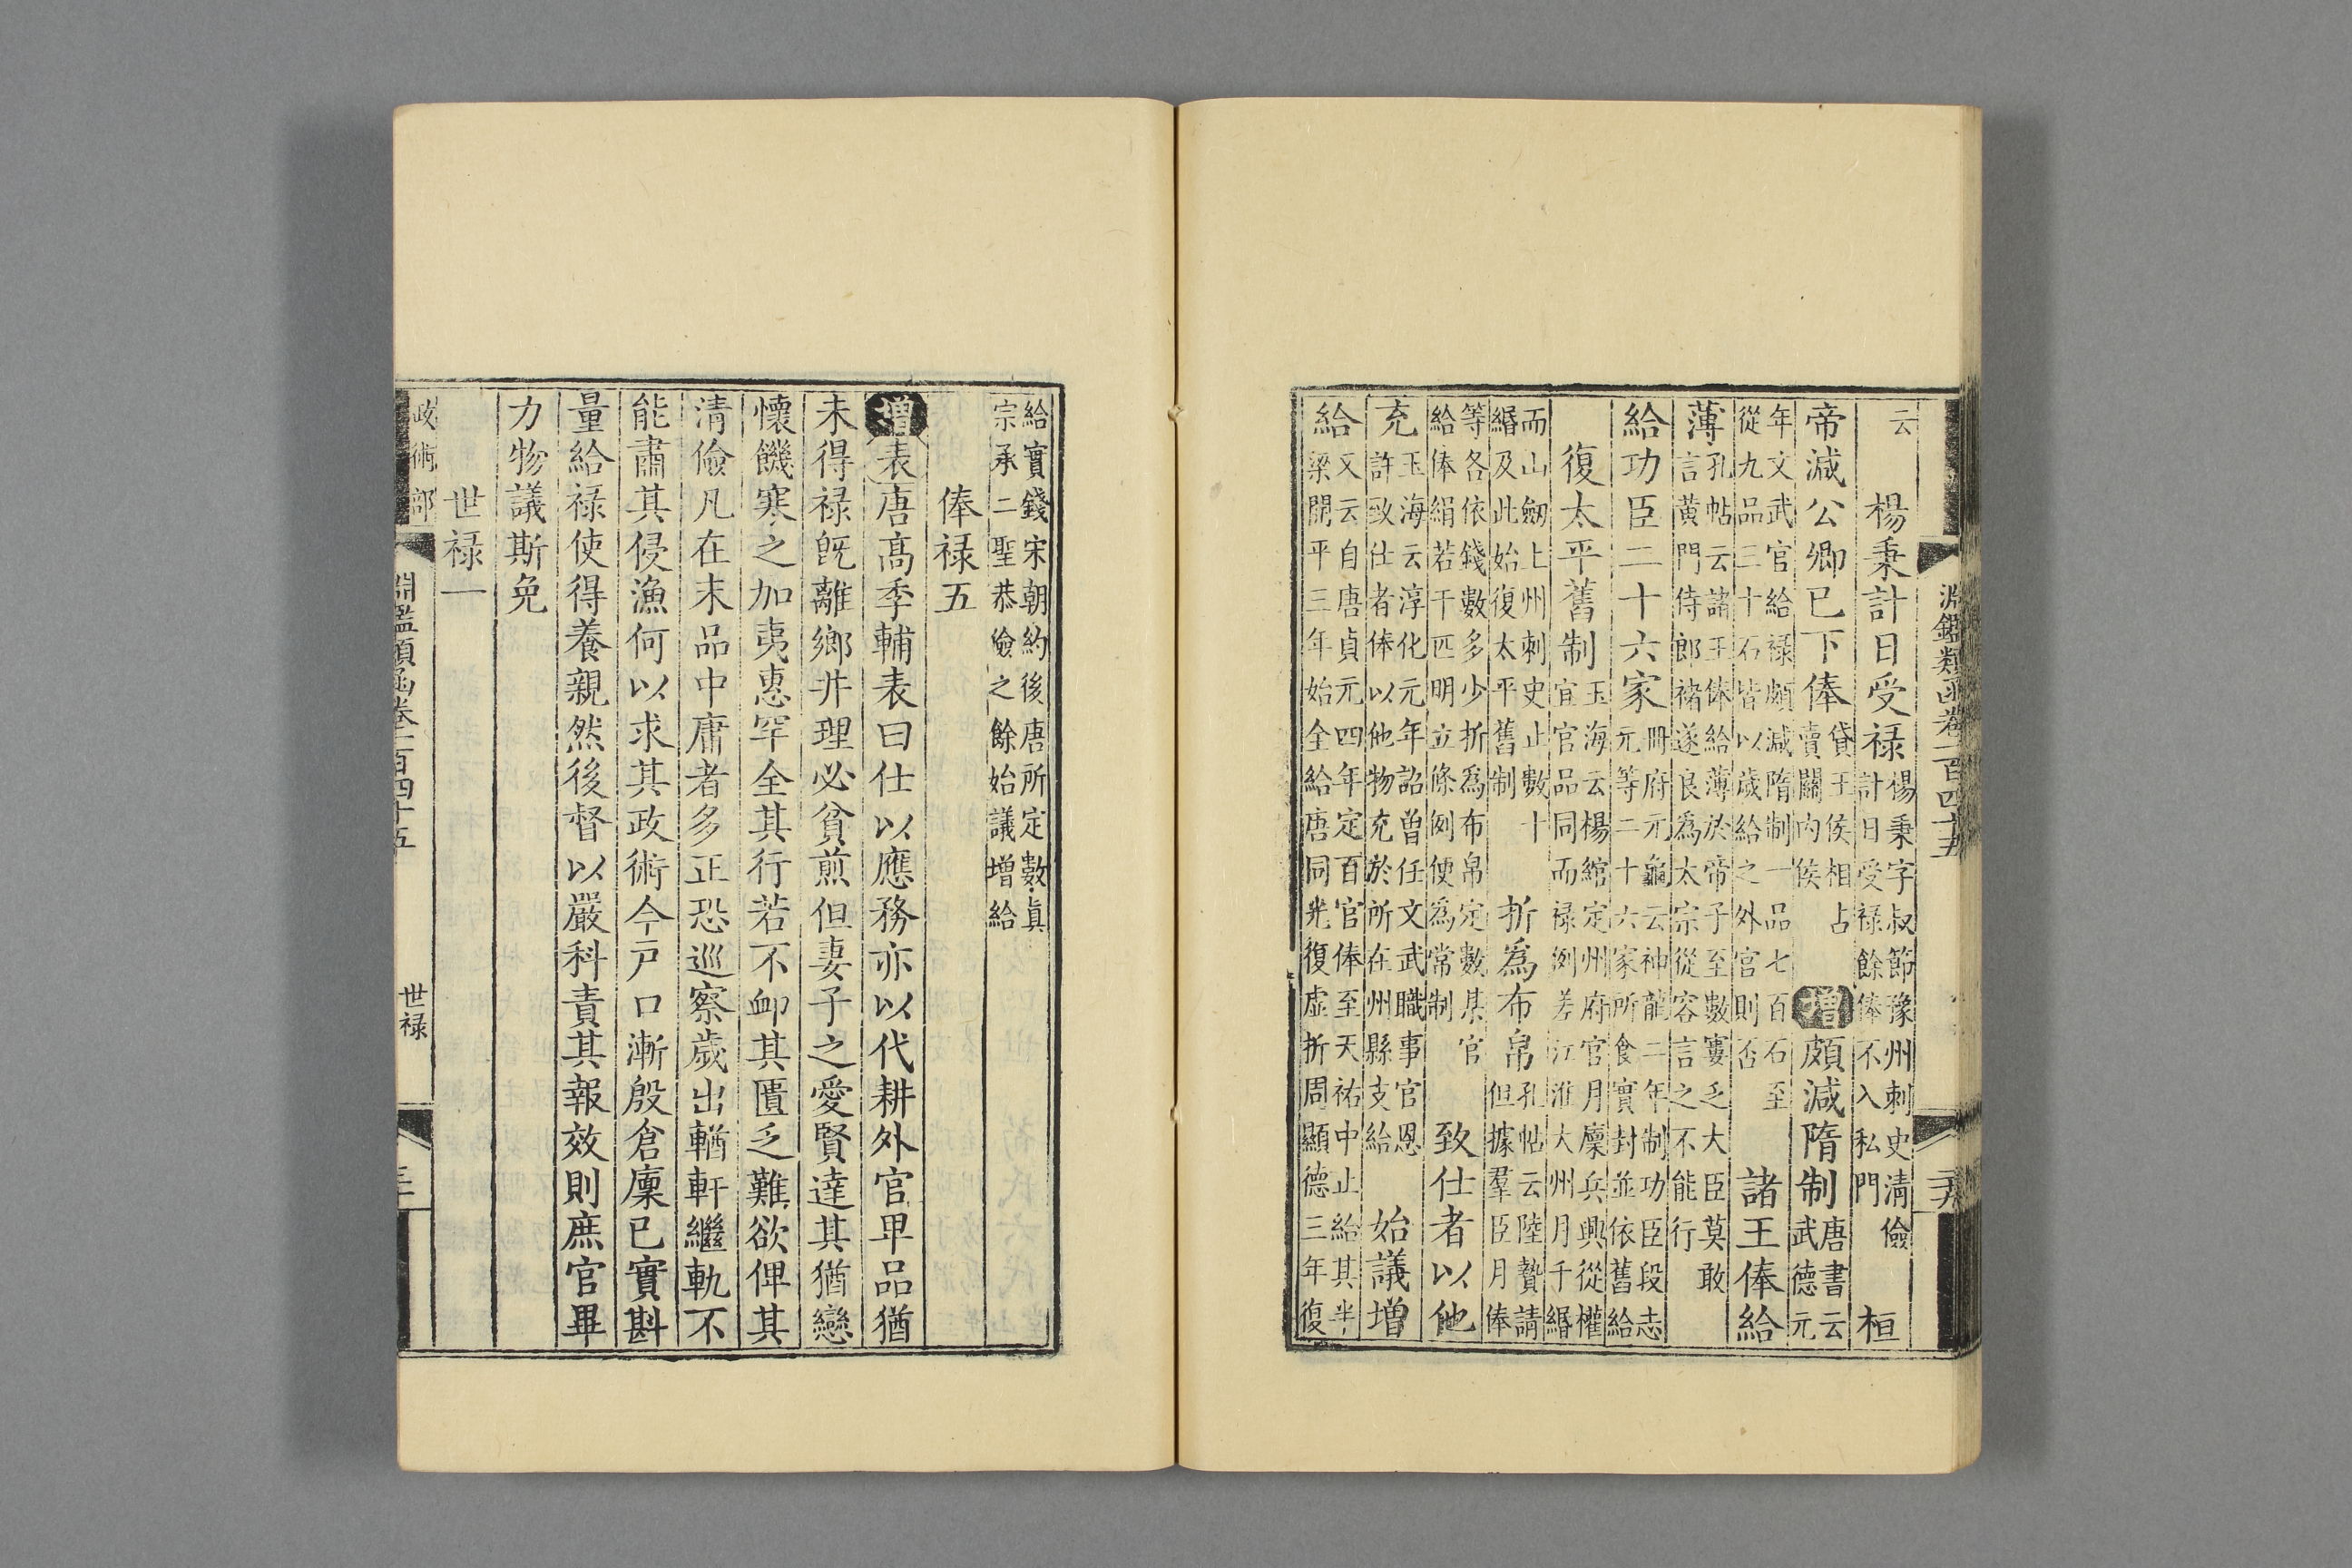 淵鑑類函卷一百四十五 二十九
云 楊秉計日受祿楊秉字叔節豫州刺史清儉計日受祿餘俸不入私門 桓
帝減公卿已下俸貸王侯相占賣關內侯 增頗減隋制唐書云武德元
年文武官給祿頗減隋制一品七百石至從九品三十石皆以歲給之外官則否 諸王俸給
薄孔帖云諸王俸給薄於帝子至數窶乏大臣莫敢言黃門侍郎褚遂良爲太宗從容言之不能行
給功臣二十六家冊府元龜云神龍二年制功臣段志元等二十六家所食實封並依舊給
復太平舊制玉海云楊綰定州府官月廩兵興從權宜官品同而祿例差江淮大州月千緡
而山劒上州刺史止數十緡及此始復太平舊制 折爲布帛孔帖云陸贄請但據羣臣月俸
等各依錢數多少折爲布帛定數某官給俸絹若干匹明立條例便爲常制 致仕者以他
充玉海云淳化元年詔曾任文武職事官恩許致仕者俸以他物充於所在州縣支給 始議增
給又云自唐貞元四年定百官俸至天祐中止給其半梁開平三年始全給唐同光復虛折周顯德三年復
給實錢宋朝約後唐所定數眞宗承二聖恭儉之餘始議增給
俸祿五
增表唐高季輔表曰仕以應務亦以代耕外官卑品猶
未得祿旣離鄉井理必貧煎但妻子之愛賢達其猶戀
懷饑寒之加夷惠罕全其行若不卹其匱乏難欲俾其
清儉凡在末品中庸者多正恐巡察歲出輶軒繼軌不
能肅其侵漁何以求其政術今戸口漸殷倉廩已實斟
量給祿使得養親然後督以嚴科責其報效則庶官畢
力物議斯免
世祿一
政術部 淵鑑類函卷一百四十五 世祿 三十